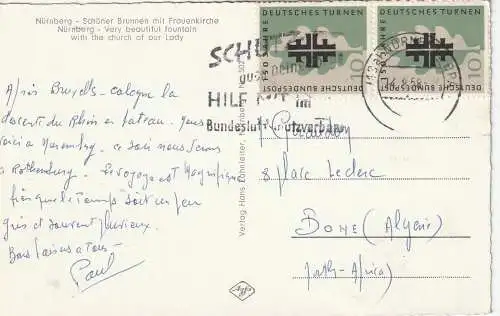 Nürnberg - Schöner Brunnen mit Frauenkirche
Nürnberg - Very beautiful fountain
with the church of our Lady
Après Bruxelles - Cologne la
du Rhin en bateau. Nous
voici à Nuremberg. Ce soir nous serons
à Rothenburg. Le voyage est magnifique
bien que le temps soit un peu
gris et souvent pluvieux.
Bons baisers à tous -
Paul
Verlag Hans
Agfa
150 JAHRE DEUTSCHES TURNEN
DEUTSCHE BUNDESPOST
10
150 JAHRE DEUTSCHES TURNEN
DEUTSCHE BUNDESPOST
10
SCHÜTZ
HILF MIT im
Bundesluftschutzverband
NÜRNBERG
8 place Leclerc
BONE (Algérie)
(North-Africa)